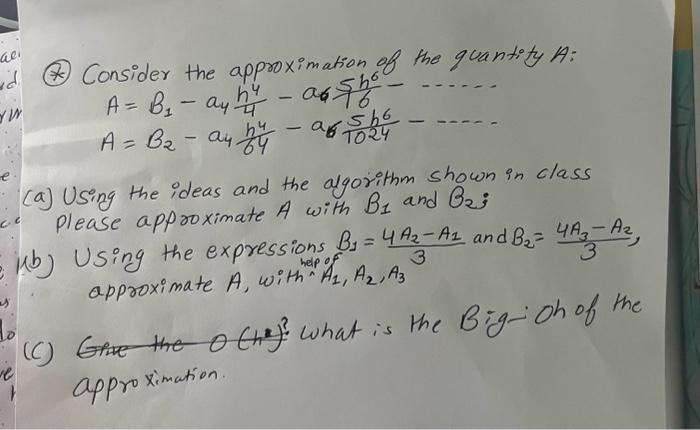 * Consider the approximation of the quantity A:
A = B₁ - a₄ h⁴/4 - a₆ 5h⁶/16 - ------
A = B₂ - a₄ h⁴/64 - a₆ 5h⁶/1024 - -----
(a) Using the ideas and the algorithm shown in class
Please approximate A with B₁ and B₂;
(b) Using the expressions B₁ = 4A₂-A₁/3 and B₂ = 4A₃-A₂/3,
approximate A, with help of A₁, A₂, A₃
(C) Give the O(h)? what is the Big-Oh of the
approximation.